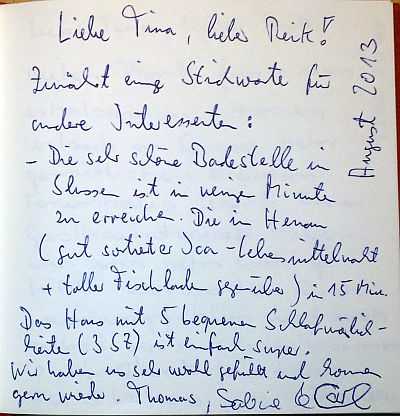 Liebe Tina, lieber Reik!
Zunächst einige Stichworte für
andere Interessenten:
- Die sehr schöne Badestelle in
Slussen ist in wenigen Minuten
zu erreichen. Die in Henan
(gut sortierter Ica-Lebensmittelmarkt
+ toller Fischladen gegenüber) in 15 Min.
Das Haus mit 5 bequemen Schlafmöglich-
keiten (3 SZ) ist einfach super.
Wir haben uns sehr wohl gefühlt und kommen
gern wieder. Thomas, Sabine & Carl
August 2013